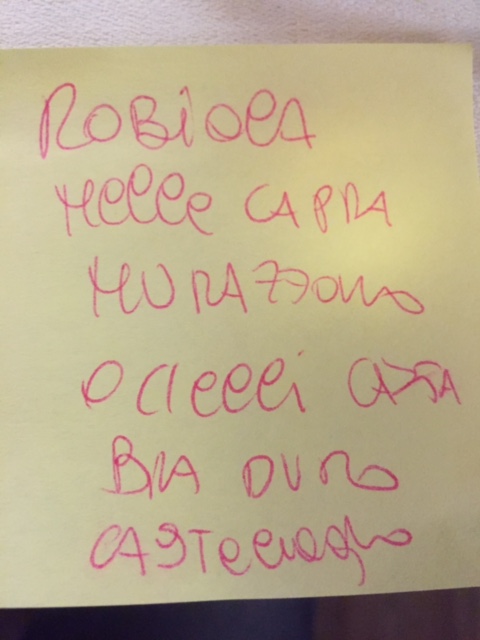 ROBIOLA
MELLE CAPRA
MURAZZANO
OCCELLI CASTA
BRA DURO
CASTELMAGNO